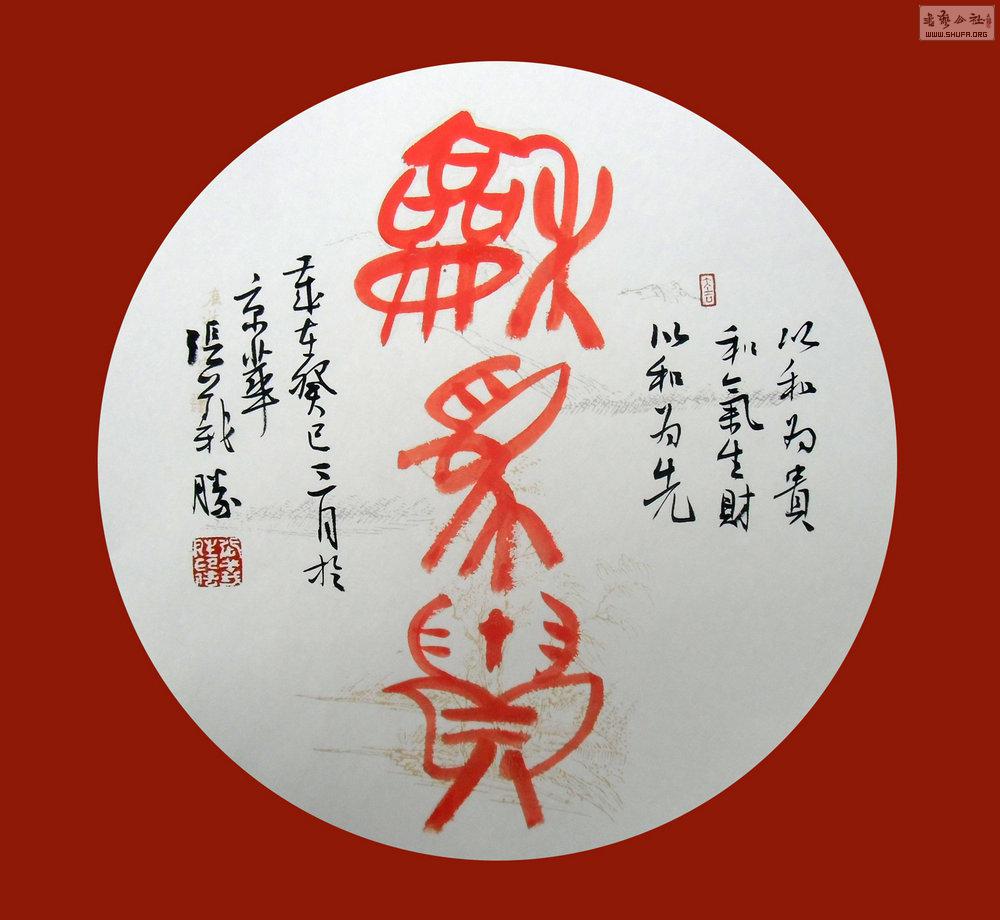 書藝公社
WWW.SHUFA.ORG
以和为貴
和氣生財
以和为先
龢為貴
歲在癸巳三月於
京華
張義勝